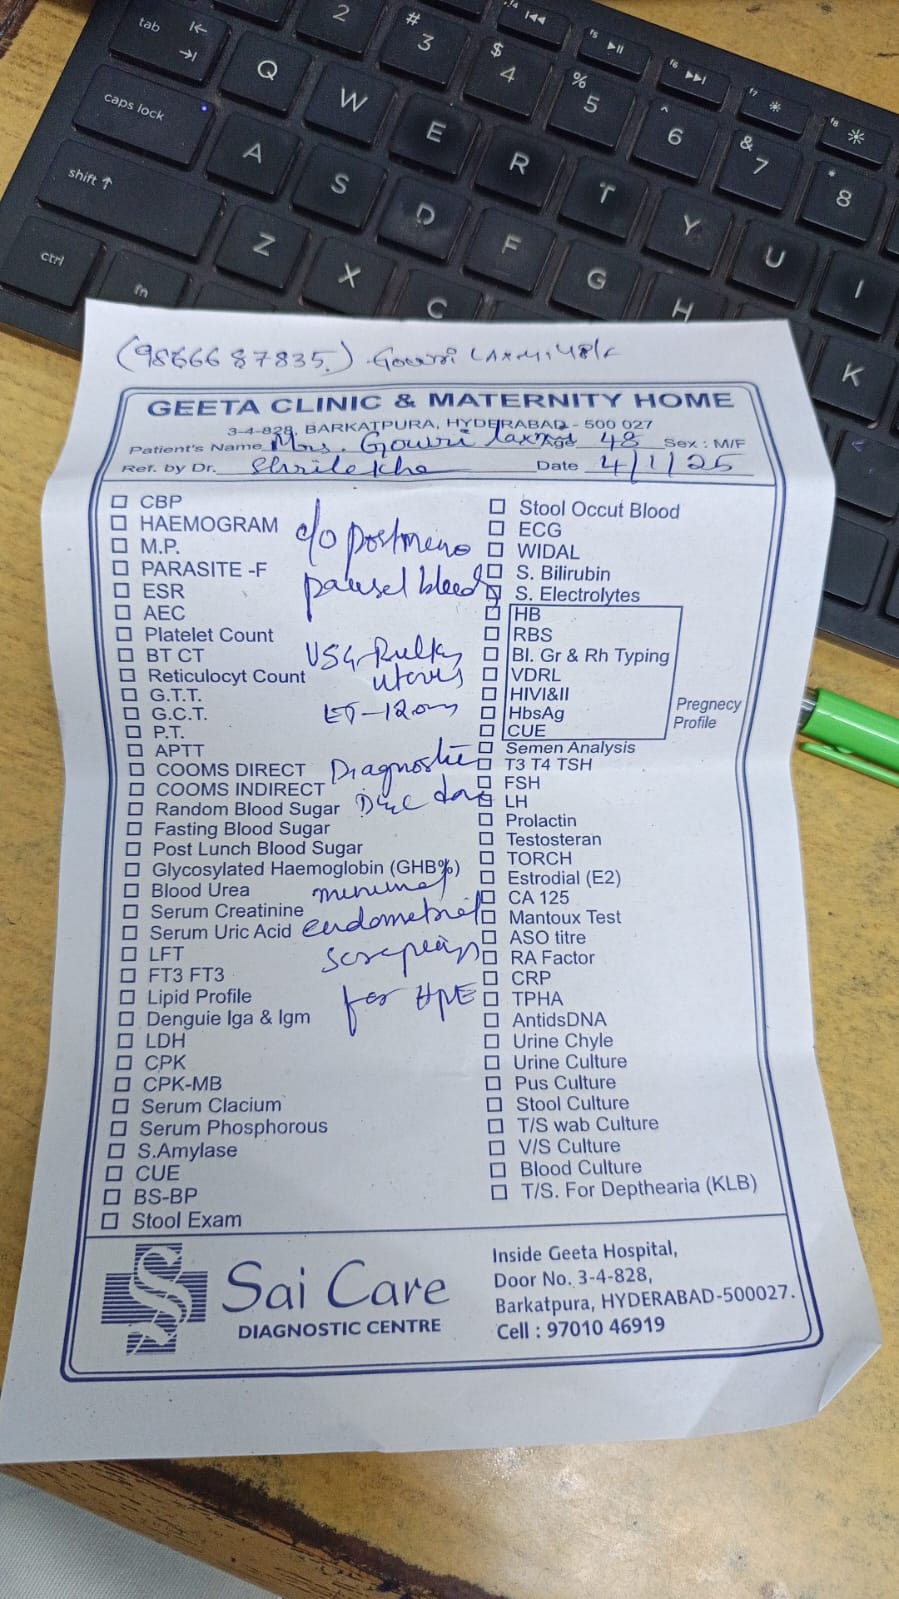 tab
caps lock
shift
ctrl
fn
2
# 3
$ 4
% 5
^ 6
& 7
* 8
f4
f5
f6
f7
f8
Q W E R T Y U I
A S D F G H K
Z X C
(9866687835.) Gowri Laxmi 48/F
GEETA CLINIC & MATERNITY HOME
3-4-828, BARKATPURA, HYDERABAD - 500 027
Patient's Name Mrs. Gowri laxmi Age 48 Sex : M/F
Ref. by Dr. Shrilekha Date 4/1/25
CBP
HAEMOGRAM
M.P.
PARASITE -F
ESR
AEC
Platelet Count
BT CT
Reticulocyt Count
G.T.T.
G.C.T.
P.T.
APTT
COOMS DIRECT
COOMS INDIRECT
Random Blood Sugar
Fasting Blood Sugar
Post Lunch Blood Sugar
Glycosylated Haemoglobin (GHB%)
Blood Urea
Serum Creatinine
Serum Uric Acid
LFT
FT3 FT3
Lipid Profile
Denguie Iga & Igm
LDH
CPK
CPK-MB
Serum Clacium
Serum Phosphorous
S.Amylase
CUE
BS-BP
Stool Exam
c/o postmeno
pausel bleed
USG-Bulky
uterus
ET-12mm
Diagnostic
D&C done
minimal
endometrial
scrapings
for HPE
Stool Occut Blood
ECG
WIDAL
S. Bilirubin
S. Electrolytes
HB
RBS
Bl. Gr & Rh Typing
VDRL
HIVI&II
HbsAg
CUE
Pregnecy
Profile
Semen Analysis
T3 T4 TSH
FSH
LH
Prolactin
Testosteran
TORCH
Estrodial (E2)
CA 125
Mantoux Test
ASO titre
RA Factor
CRP
TPHA
AntidsDNA
Urine Chyle
Urine Culture
Pus Culture
Stool Culture
T/S wab Culture
V/S Culture
Blood Culture
T/S. For Depthearia (KLB)
Sai Care
DIAGNOSTIC CENTRE
Inside Geeta Hospital,
Door No. 3-4-828,
Barkatpura, HYDERABAD-500027.
Cell : 97010 46919